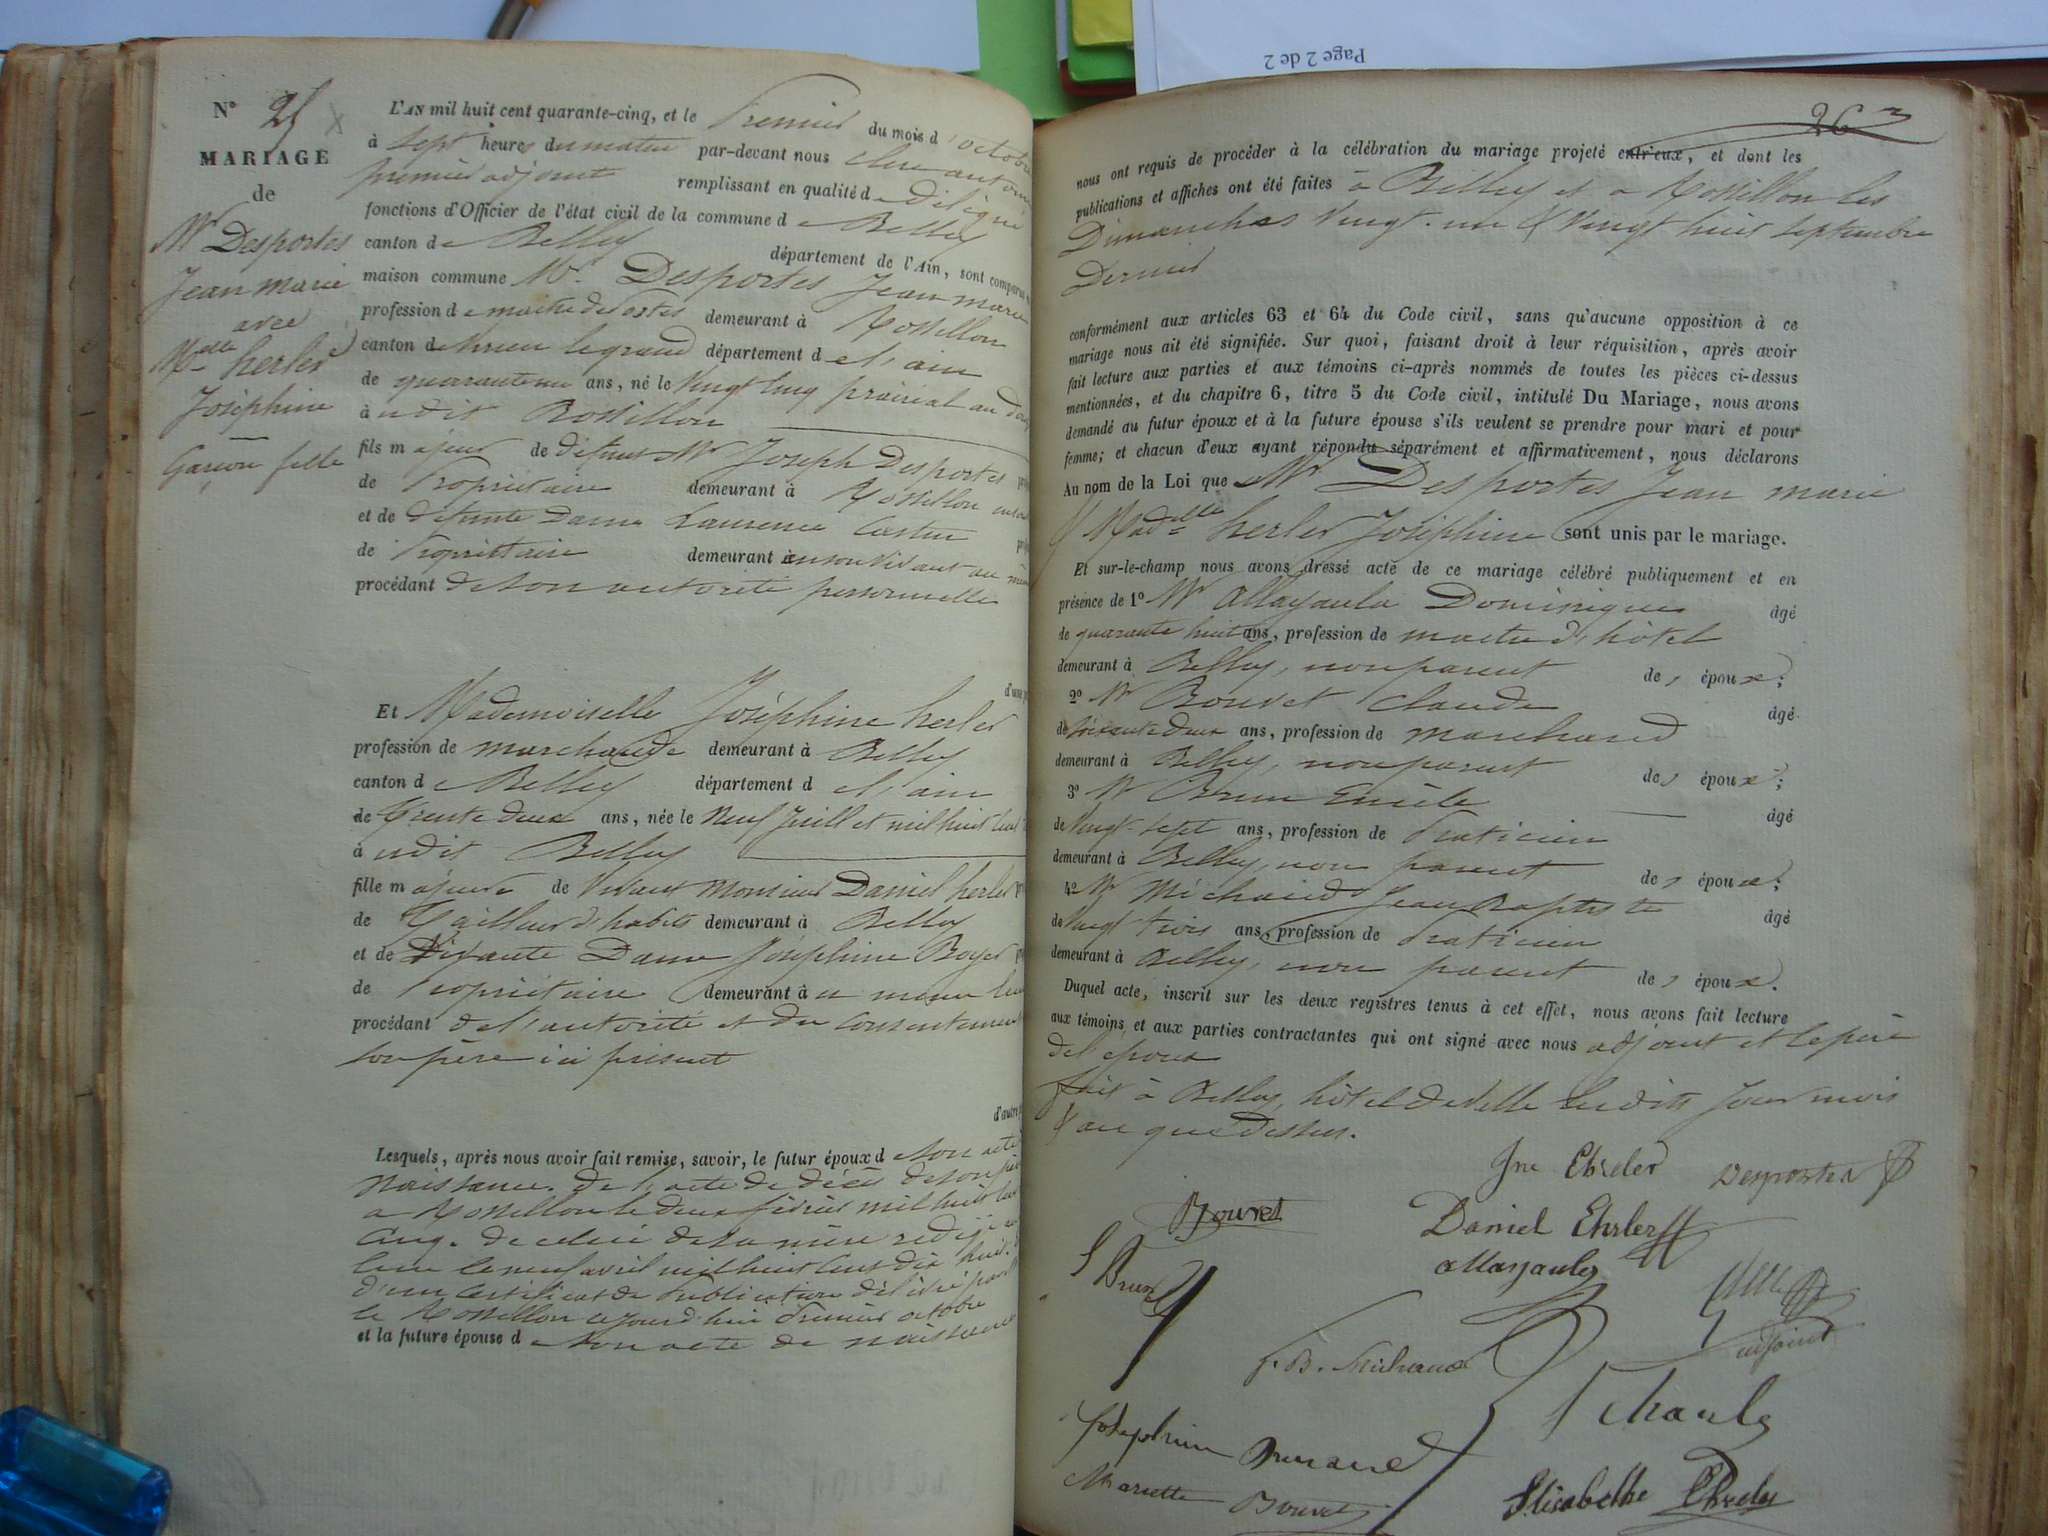 Page 2 de 2
N° 25
MARIAGE
de
Mr Desportes
Jean marie
avec
Mdlle herler
Joséphine
Garçon fille
L'AN mil huit cent quarante-cinq, et le Premier du mois d'octobre
à sept heures du matin par-devant nous antoine
premier adjoint remplissant en qualité de Délégué
fonctions d'Officier de l'état civil de la commune de Belley
canton de Belley département de l'Ain, sont comparus
maison commune Mr Desportes Jean marie
profession de maitre de Postes demeurant à Rossillon
canton de virieu le grand département de l'ain
de quarante un ans, né le Vingt cinq prairial an
à udit Rossillon
fils majeur de défunt Mr Joseph Desportes
de Propriétaire demeurant à Rossillon
et de défunte Dame Laurence
de Propriétaire demeurant à en son vivant au
procédant de son autorité personnelle
Et Mademoiselle Joséphine herler
profession de marchande demeurant à Belley
canton de Belley département de l'ain
de Trente deux ans, née le Neuf Juillet mil huit cent
à udit Belley
fille majeure de Vivant Monsieur Daniel herler
de Tailleur d'habits demeurant à Belley
et de Vivante Dame Joséphine Boyer
de Propriétaire demeurant à u meme lieu
procédant de l'autorité et du consentement
son père ici présent
d'autre
Lesquels, après nous avoir fait remise, savoir, le futur époux de son acte
Naissance. De l'acte de décès de son père
a Rossillon le deux février mil huit cent
Cinq. De celui de sa mère rédigé
lieu le neuf avril mil huit cent dix huit.
d'un certificat de Publication délivré par
de Rossillon ce jourd'hui Premier octobre
et la future épouse de son acte de naissance
26
nous ont requis de procéder à la célébration du mariage projeté entr'eux, et dont les
publications et affiches ont été faites à Belley et a Rossillon les
Dimanches Vingt-un & Vingt huit septembre
Dernier
conformément aux articles 63 et 64 du Code civil, sans qu'aucune opposition à ce
mariage nous ait été signifiée. Sur quoi, faisant droit à leur réquisition, après avoir
fait lecture aux parties et aux témoins ci-après nommés de toutes les pièces ci-dessus
mentionnées, et du chapitre 6, titre 5 du Code civil, intitulé Du Mariage, nous avons
demandé au futur époux et à la future épouse s'ils veulent se prendre pour mari et pour
femme; et chacun d'eux ayant répondu séparément et affirmativement, nous déclarons
Au nom de la Loi que Mr Desportes Jean marie
& Madlle herler Joséphine sont unis par le mariage.
Et sur-le-champ nous avons dressé acte de ce mariage célébré publiquement et en
présence de 1° Mr Dominique âgé
de quarante huit ans, profession de maitre d'hôtel
demeurant à Belley, non parent des époux;
2° Mr Bouvet Claude âgé
de soixante deux ans, profession de marchand
demeurant à Belley, non parent des époux;
3° Mr Brun Emile âgé
de Vingt-sept ans, profession de Praticien
demeurant à Belley, non parent des époux;
4° Mr Michaud Jean Baptiste âgé
de Vingt trois ans, profession de Praticien
demeurant à Belley, non parent des époux.
Duquel acte, inscrit sur les deux registres tenus à cet effet, nous avons fait lecture
aux témoins et aux parties contractantes qui ont signé avec nous adjoint et le père
de l'épouse
fait à Belley, hôtel de Ville lesdits jour mois
& an que dessus.
Jne Ehrler Desportes
Bouvet Daniel Ehrler
E Brun
J. B. Michaud adjoint
Josephine
Mariette Bouvet Elisabethe Ehrler